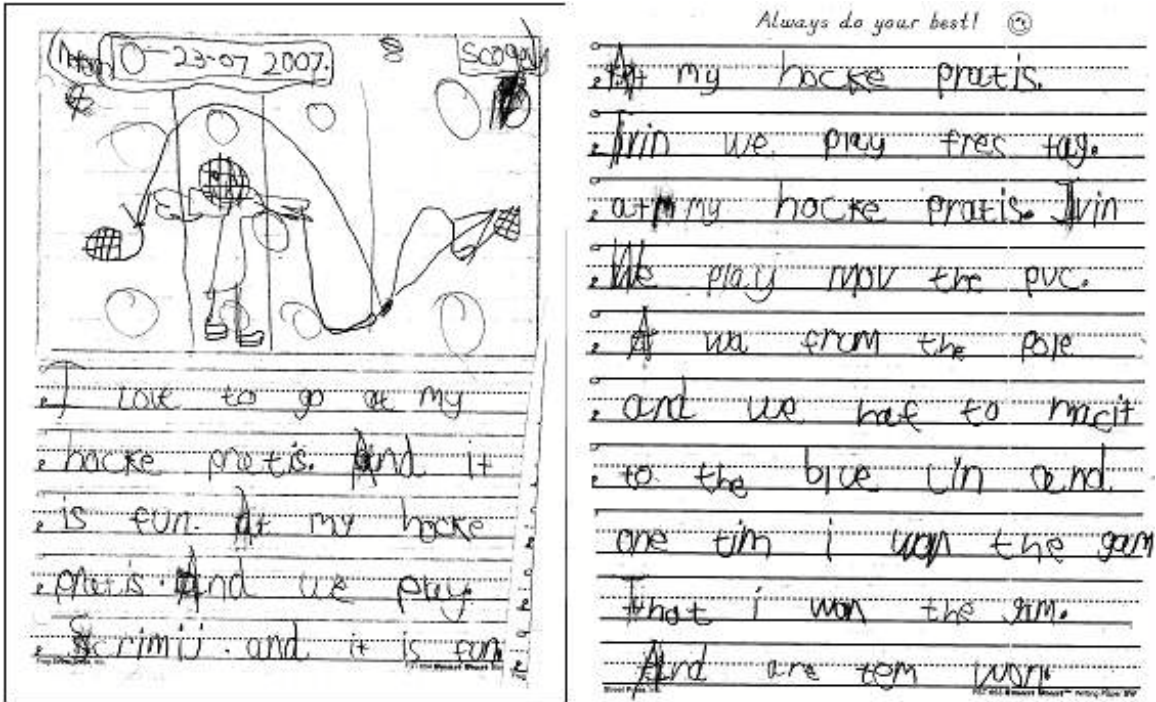 0-23-07 2007.
I love to go at my
hocke pratis. And it
is fun. At my hocke
pratis. And we play
Scrimij. and it is fun.
Always do your best!
At my hocke pratis.
Ivin we play fres tag.
at my hocke pratis. Ivin
We play mov the puc.
A wa frum the pole
and we haf to macit
to the blue lin and
one tim i won the gam
That i won the gim.
And are tem won.